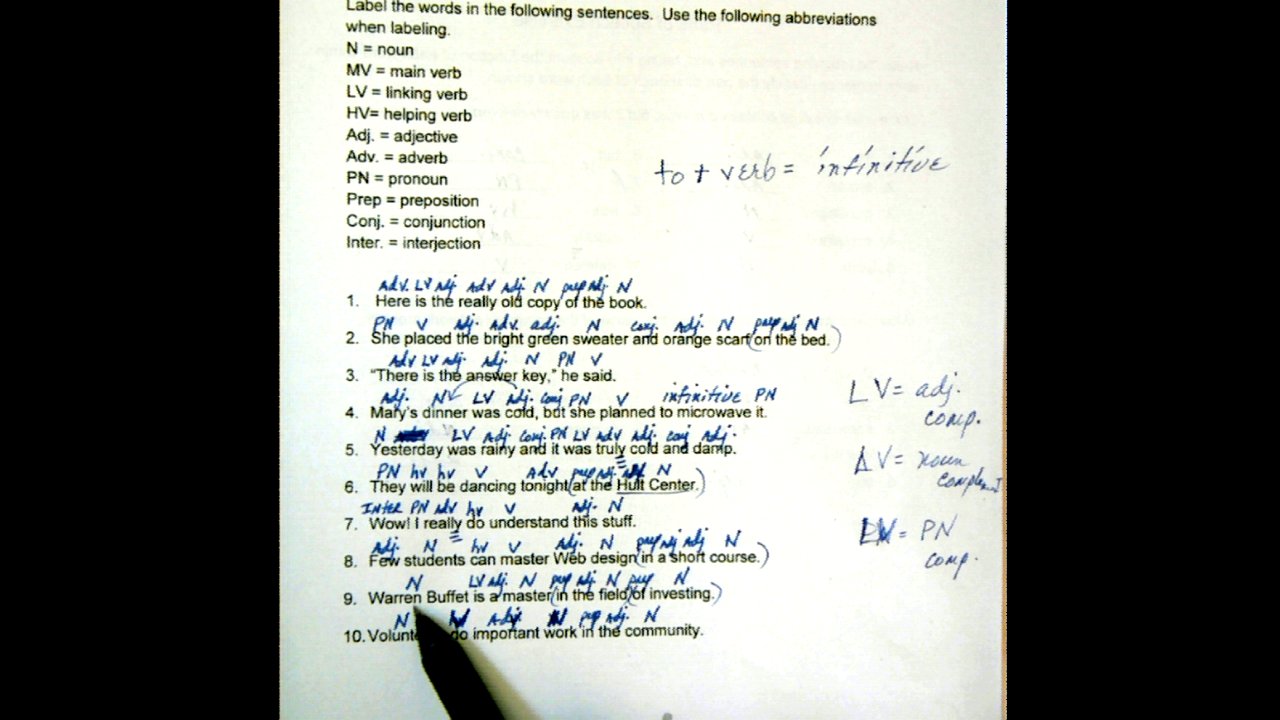 Label the words in the following sentences. Use the following abbreviations
when labeling.
N = noun
MV = main verb
LV = linking verb
HV= helping verb
Adj. = adjective
Adv. = adverb
PN = pronoun
Prep = preposition
Conj. = conjunction
Inter. = interjection
to + verb = infinitive
Adv. LV Adj Adv Adj N prep Adj N
1. Here is the really old copy of the book.
PN V Adj. Adv. adj. N conj. Adj. N prep adj N
2. She placed the bright green sweater and orange scarf (on the bed.)
Adv LV Adj. Adj. N PN V
3. "There is the answer key," he said.
Adj. N LV Adj. conj PN V infinitive PN
4. Mary's dinner was cold, but she planned to microwave it.
LV = adj.
comp.
N LV Adj conj PN LV adv Adj. conj Adj.
5. Yesterday was rainy and it was truly cold and damp.
LV = noun
PN hv hv V Adv prep Adj. N
6. They will be dancing tonight (at the Hult Center.)
Inter PN adv hv V adj. N
7. Wow! I really do understand this stuff.
LV = PN
comp.
Adj. N hv V Adj. N prep Adj Adj N
8. Few students can master Web design (in a short course.)
N LV adj. N prep Adj N prep N
9. Warren Buffet is a master (in the field (of investing.)
N Adj N prep Adj. N
10. do important work in the community.